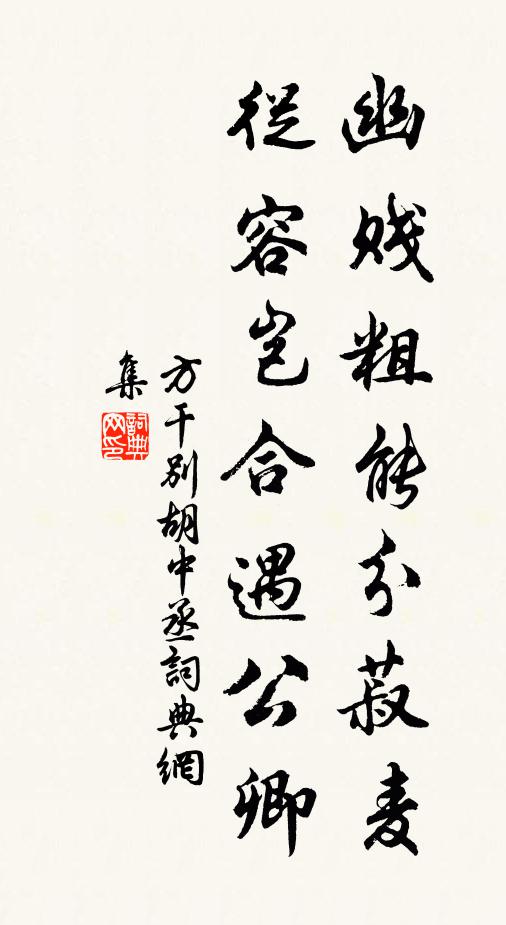 幽賤粗能分菽麦
從容岂合遇公卿
方干別胡中丞詞典網
集
詞典网印